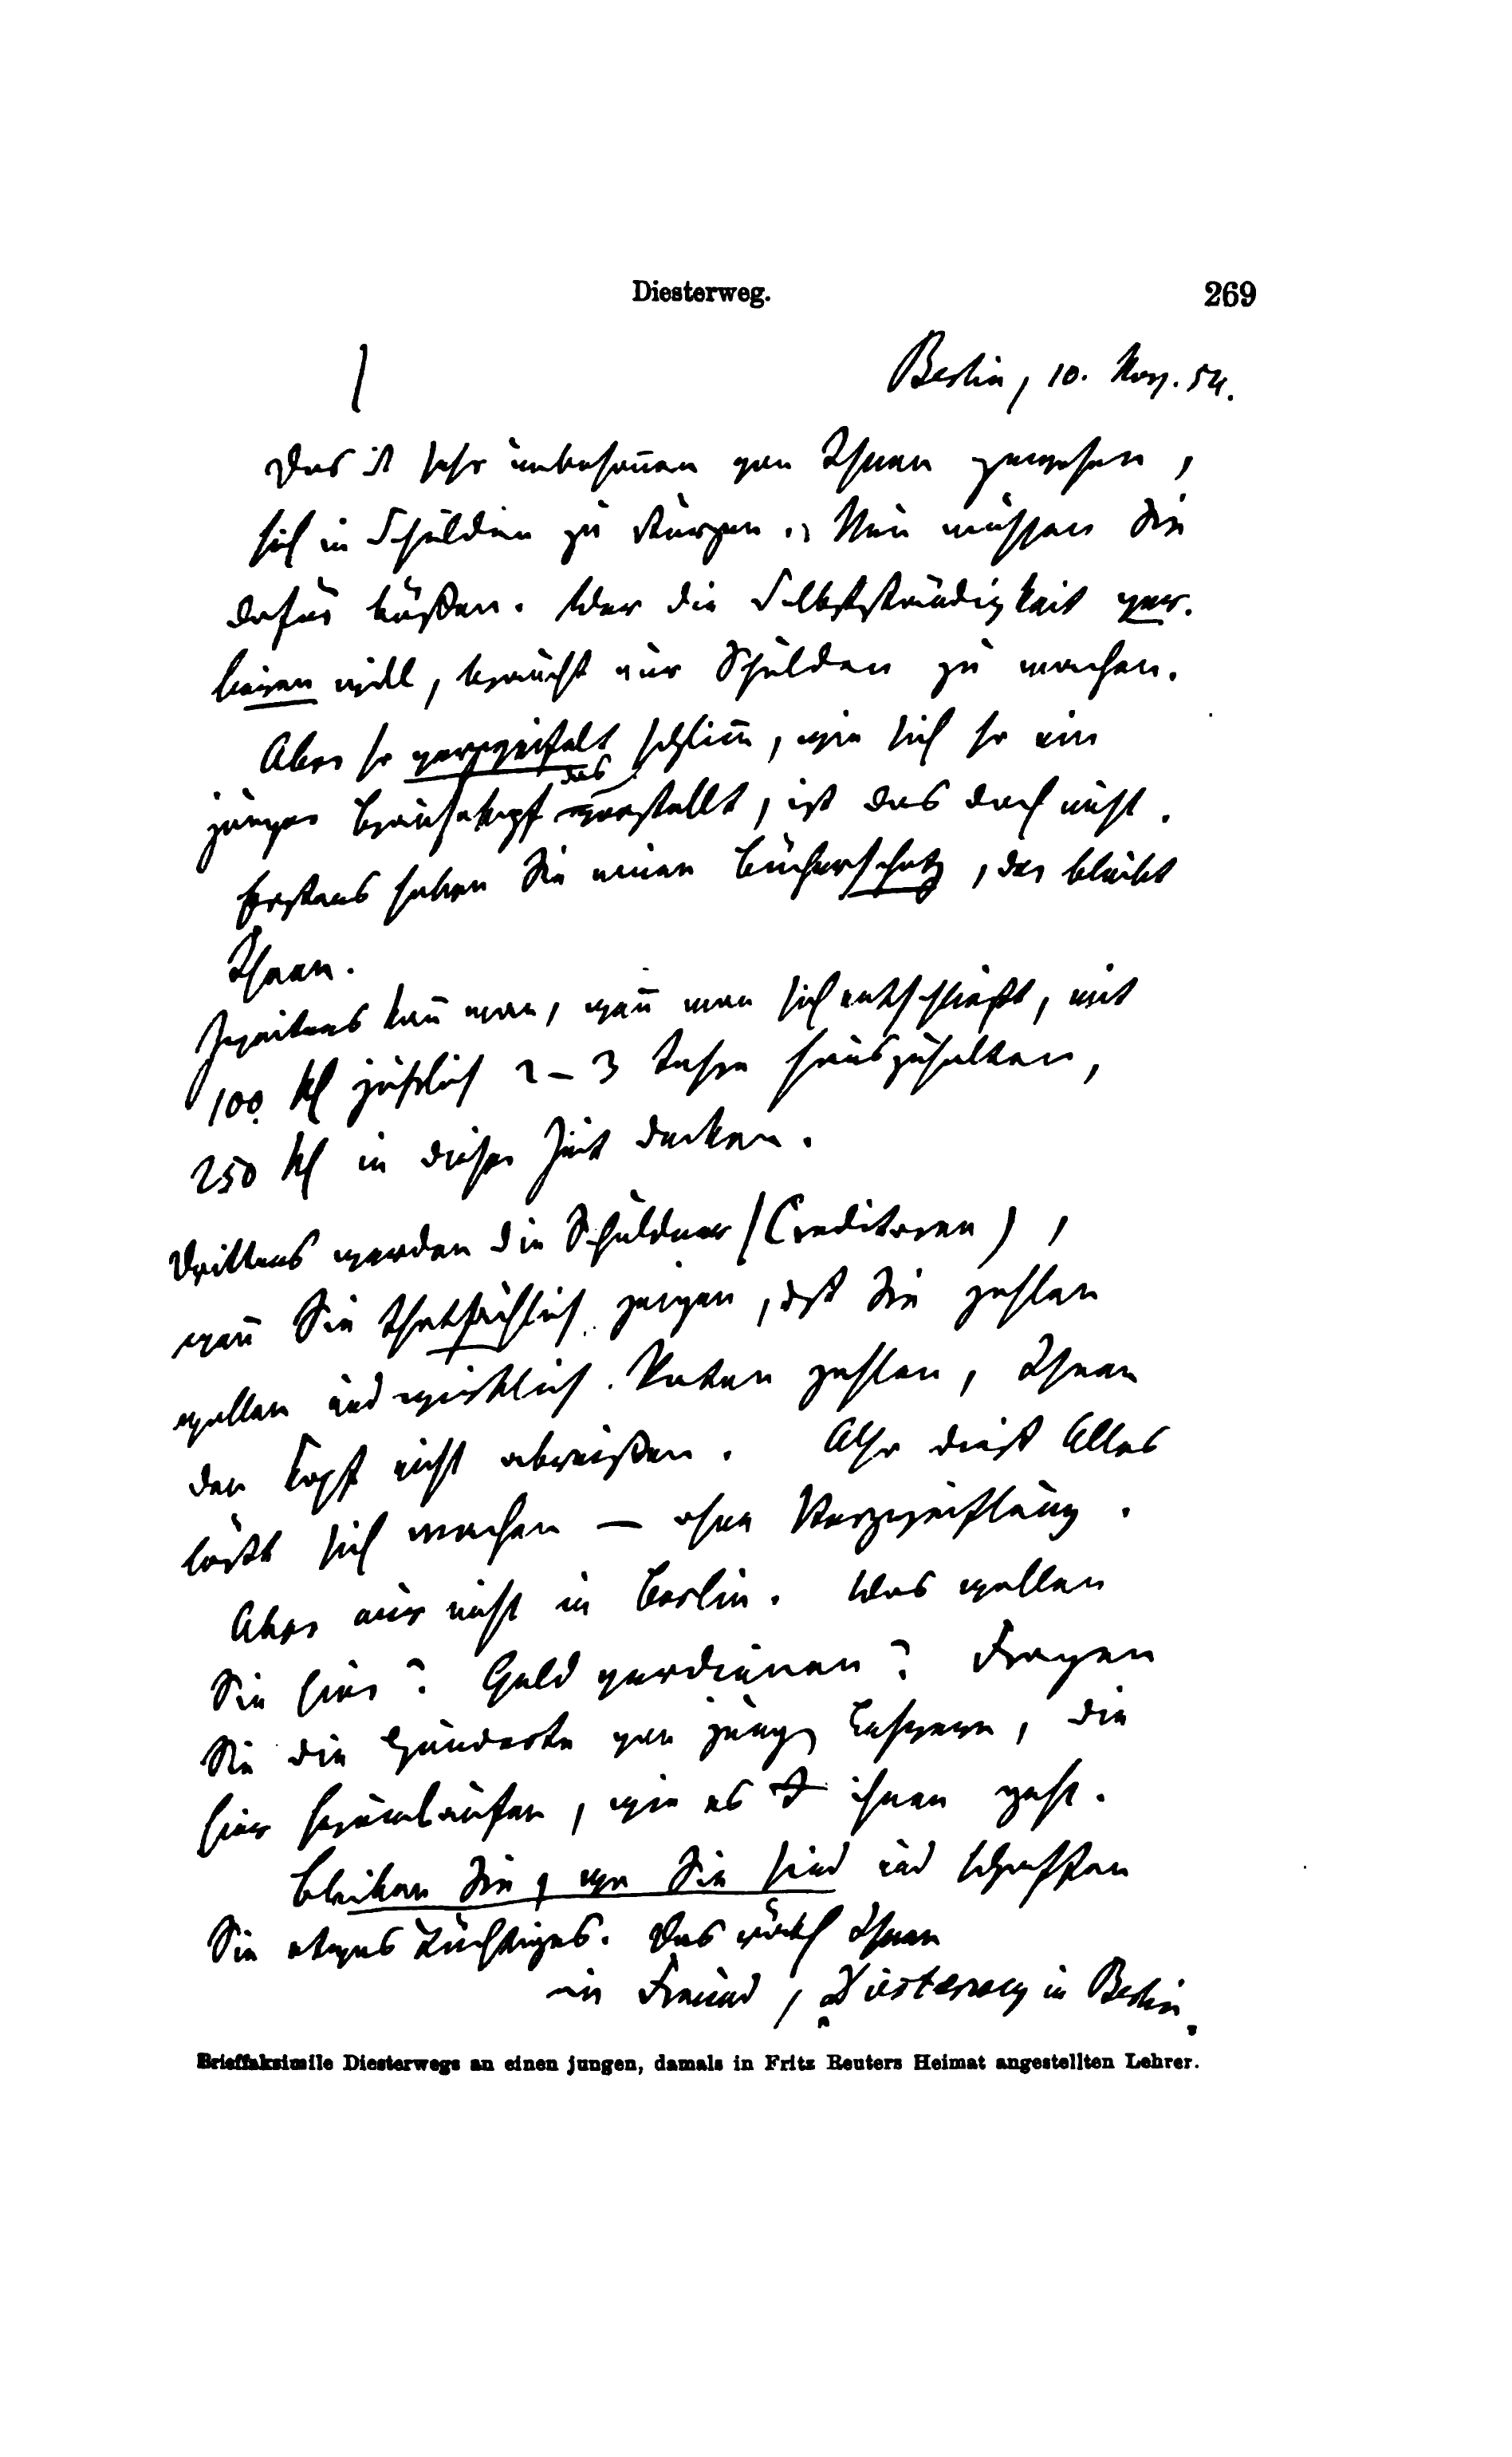 Diesterweg.
269
Berlin, 10. Nov. 54.
Das ist sehr unbesonnen von Ihnen gewesen,
sich in Schulden zu stürzen. Nun müssen Sie
dafür büßen. Wer die Selbstständigkeit ver-
lieren will, braucht nur Schulden zu machen.
Aber so verzweifelt schlim̄, wie sich so ein
junger Brausekopf das vorstellt, ist das doch nicht.
Erstens haben Sie einen Bücherschatz, der bleibt
Ihnen.
Zweitens kan̄ man, wen̄ man sich entschließt, mit
100 Rl jährlich 2–3 Jahre hauszuhalten,
250 Rl in dieser Zeit decken.
Drittens werden die Schuldner (Creditoren),
wen̄ Sie thatsächlich zeigen, daß Sie zahlen
wollen und wirklich Raten zahlen, Ihnen
den Kopf nicht abreißen. Also dieß Alles
läßt sich machen — ohne Verzweiflung.
Aber nur nicht in Berlin. Was wollen
Sie hier? Geld verdienen? Fragen
Sie die Hunderte von jungen Lehrern, die
hier herumlaufen, wie es ihnen geht.
Bleiben Sie, wo Sie sind und schaffen
Sie etwas Tüchtiges. Das räth Ihnen
ein Freund, Diesterweg in Berlin.
Brieffaksimile Diesterwegs an einen jungen, damals in Fritz Reuters Heimat angestellten Lehrer.